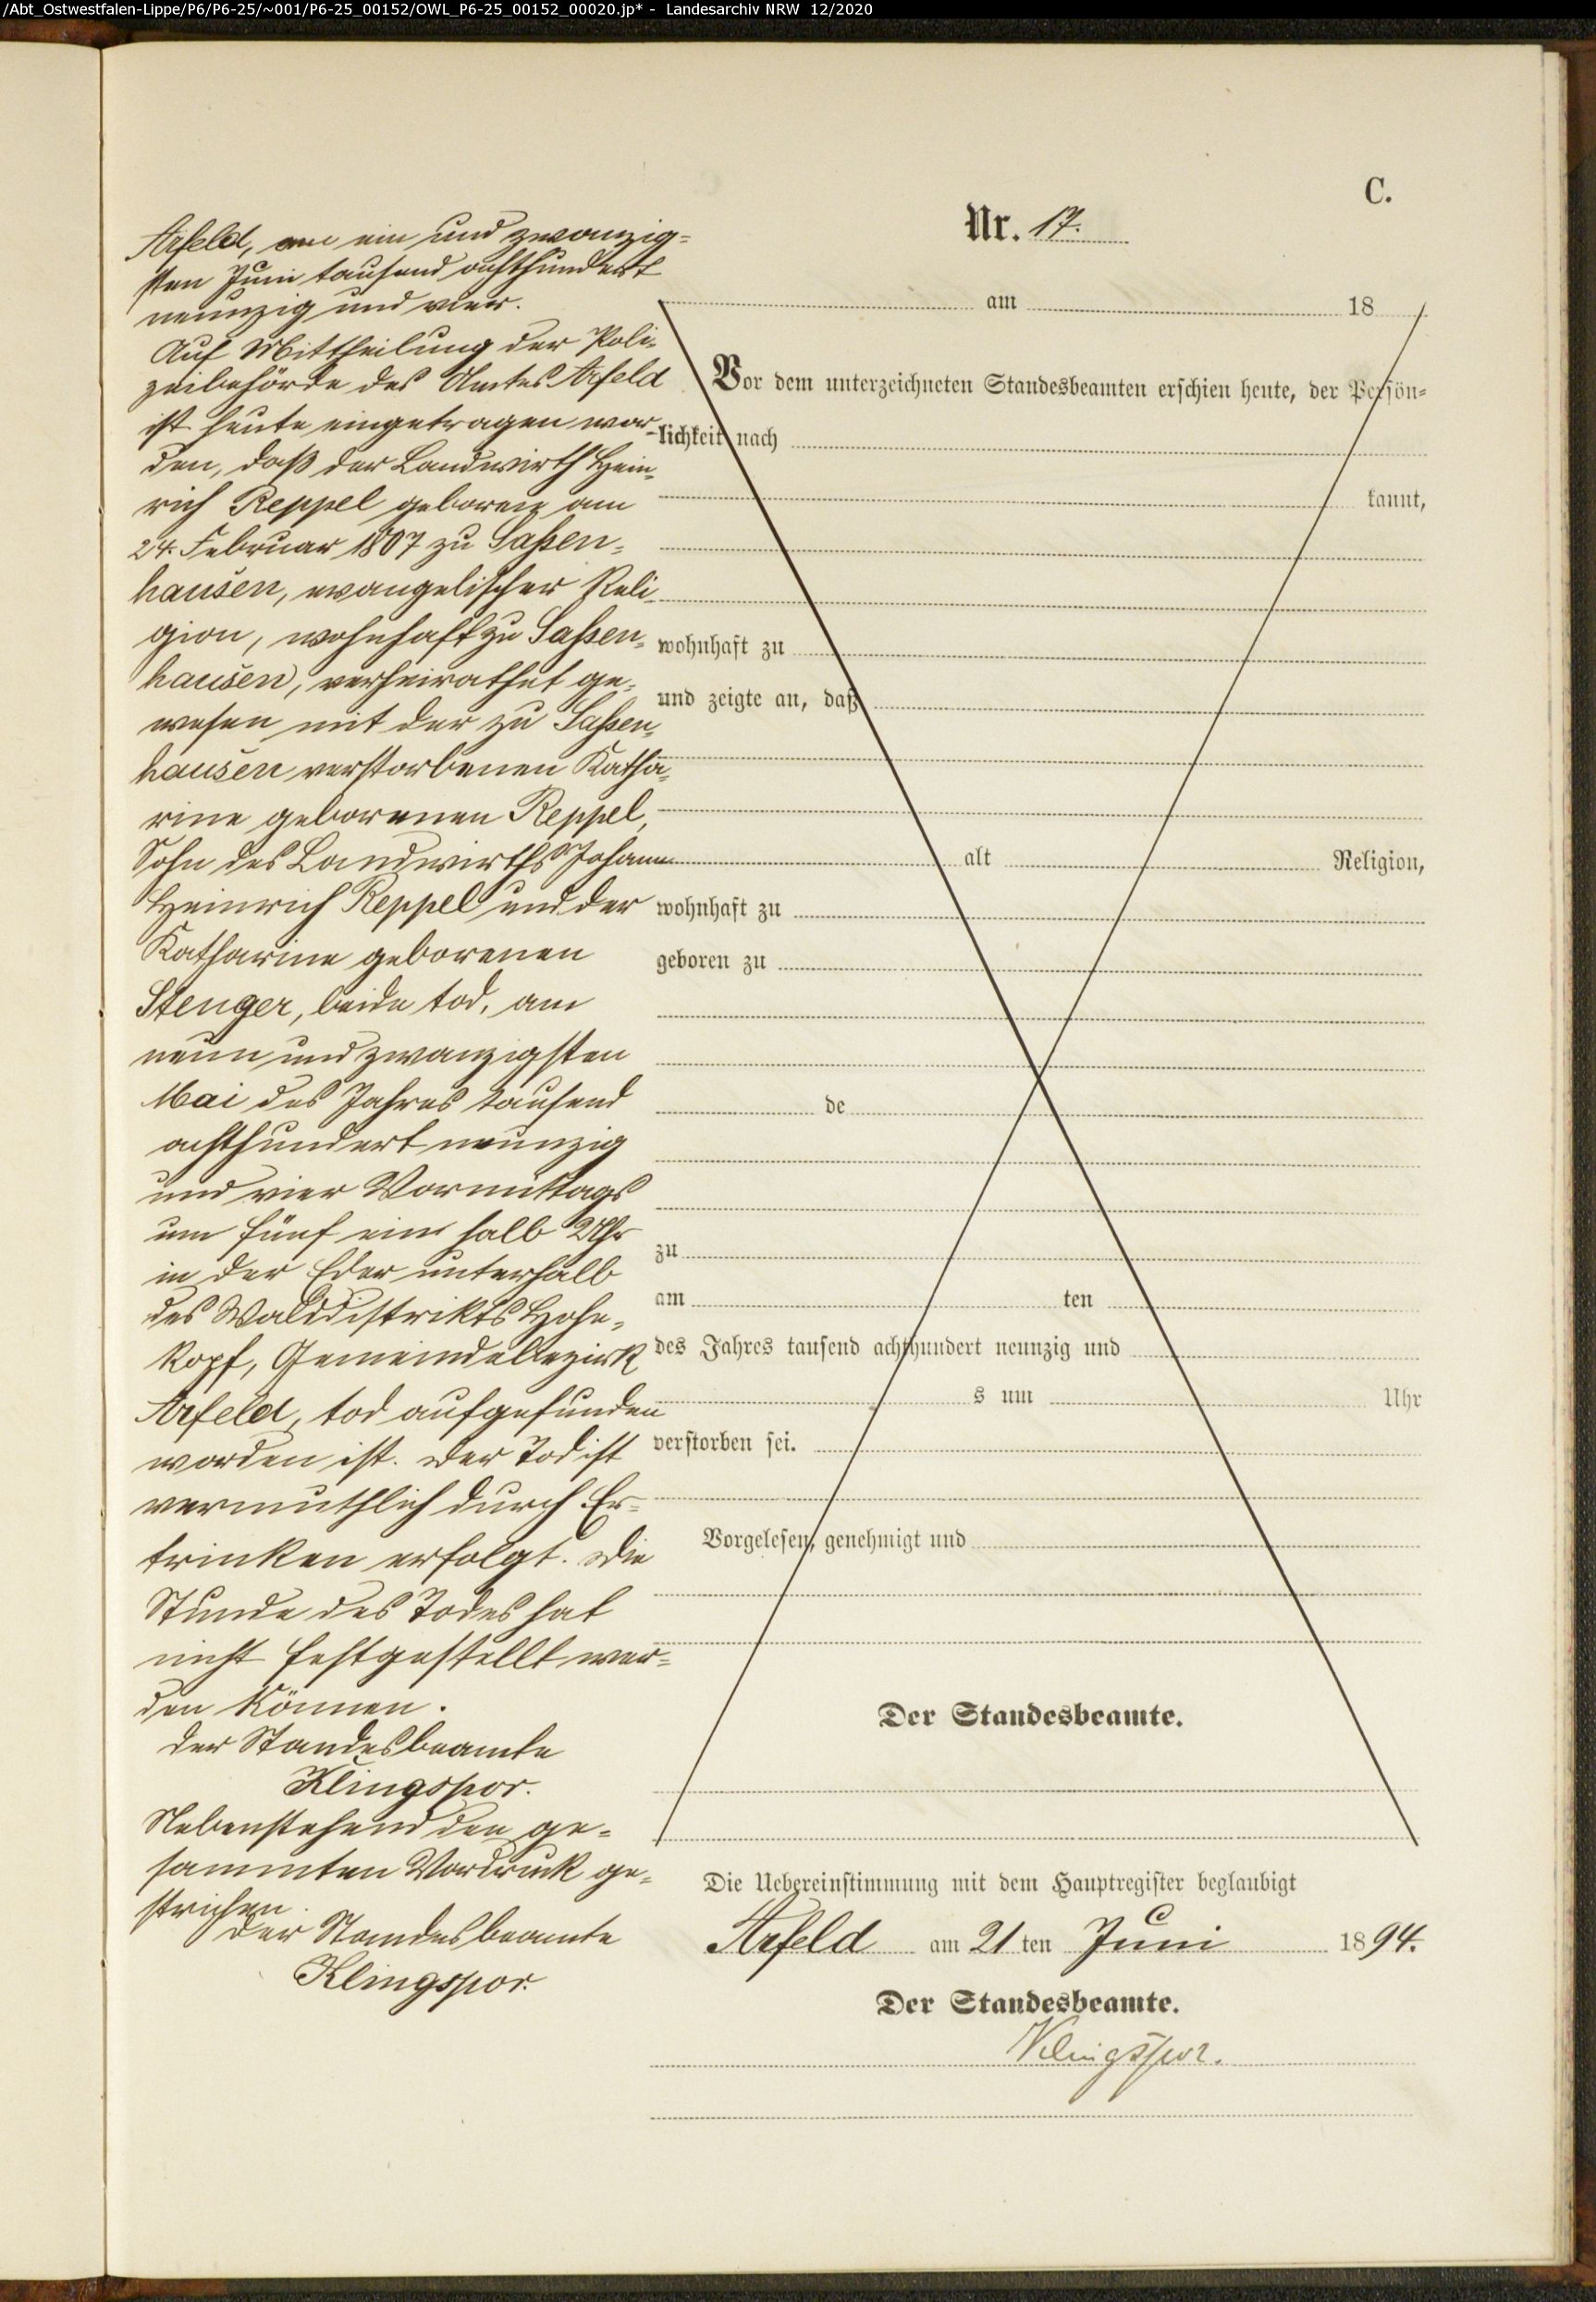 /Abt_Ostwestfalen-Lippe/P6/P6-25/~001/P6-25_00152/OWL_P6-25_00152_00020.jp* - Landesarchiv NRW 12/2020
C.
Nr. 17.
Arfeld, am ein und zwanzig=
sten Juni tausend achthundert
neunzig und vier.
Auf Mittheilung der Poli-
zeibehörde des Amtes Arfeld
ist heute eingetragen wor-
den, daß der Landwirth Hein-
rich Reppel geboren am
24. Februar 1807 zu Saßen-
hausen, evangelischer Reli-
gion, wohnhaft zu Saßen-
hausen, verheirathet ge-
wesen mit der zu Saßen-
hausen verstorbenen Katha-
rine geborenen Reppel,
Sohn des Landwirths Johann
Heinrich Reppel und der
Katharine geborenen
Stenger, beide tod, am
neun und zwanzigsten
Mai des Jahres tausend
achthundert neunzig
und vier Vormittags
um fünf ein halb Uhr
in der Eder unterhalb
des Walddistrikts Hohe-
kopf, Gemeindebezirk
Arfeld, tod aufgefunden
worden ist. Der Tod ist
vermuthlich durch Er-
trinken erfolgt. Die
Stunde des Todes hat
nicht festgestellt wer-
den können.
Der Standesbeamte
Klingspor.
Nebenstehend den ge-
sammten Vordruck ge-
strichen.
Der Standesbeamte
Klingspor.
am 18
Vor dem unterzeichneten Standesbeamten erschien heute, der Persön=
lichkeit nach
kannt,
wohnhaft zu
und zeigte an, daß
alt Religion,
wohnhaft zu
geboren zu
de
zu
am ten
des Jahres tausend achthundert neunzig und
s um Uhr
verstorben sei.
Vorgelesen, genehmigt und
Der Standesbeamte.
Die Uebereinstimmung mit dem Hauptregister beglaubigt
Arfeld am 21 ten Juni 1894.
Der Standesbeamte.
Klingspor.